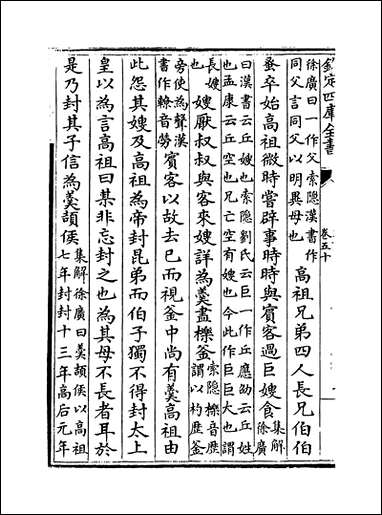 欽定四庫全書
卷五十
徐廣曰一作父 索隱漢書作
同父言同父以明異母也
高祖兄弟四人長兄伯伯
蚤卒始高祖微時嘗辟事時時與賓客過巨嫂食
集解
徐廣
曰漢書云丘嫂也索隱劉氏云巨一作丘應劭云丘姓
也孟康云丘空也兄亡空有嫂也今此作巨巨大也謂
長嫂
也
嫂厭叔叔與客來嫂詳為羹盡櫟釜
索隱櫟音歷
謂以杓歷釜
旁使為聲漢
書作轑音勞
賓客以故去已而視釜中尚有羹高祖由
此怨其嫂及高祖為帝封昆弟而伯子獨不得封太上
皇以為言高祖曰某非忘封之也為其母不長者耳於
是乃封其子信為羹頡侯
集解徐廣曰羹頡侯以高祖
七年封封十三年高后元年